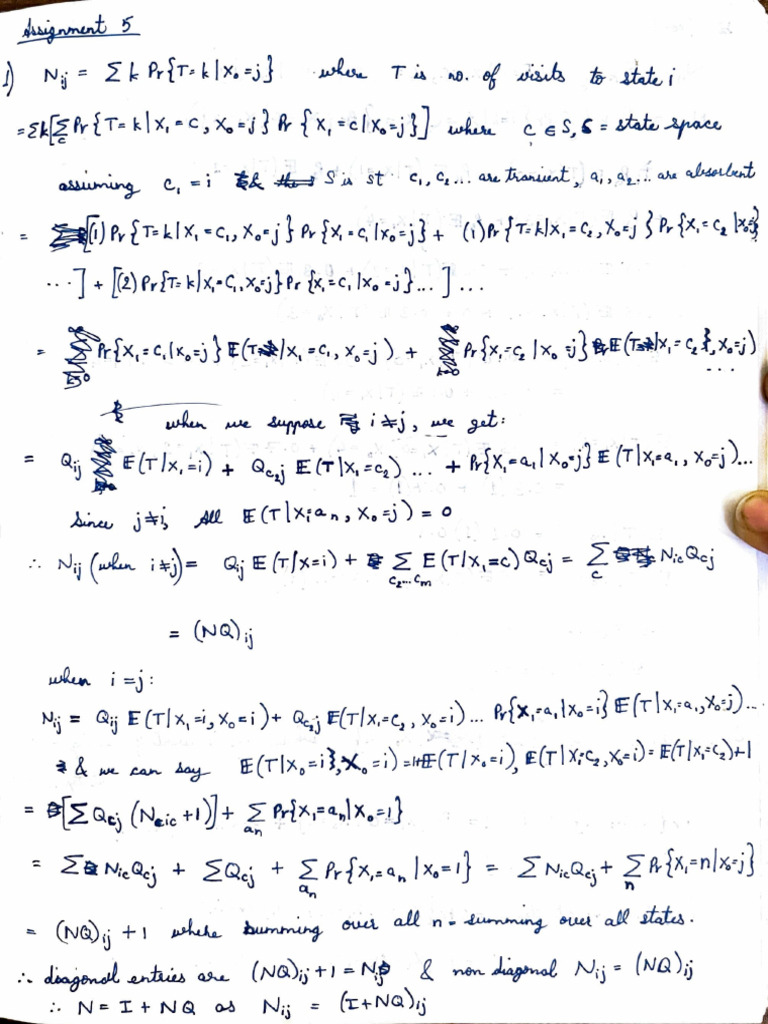 Assignment 5
1) Nij = Σ k Pr{T=k|X₀=j} where T is no. of visits to state i
= Σk[Σ_c Pr{T=k|X₁=c, X₀=j} Pr{X₁=c|X₀=j}] where c ∈ S, S = state space
assuming c₁ = i & S is st c₁, c₂... are transient, a₁, a₂... are absorbent
= [(1) Pr{T=k|X₁=c₁, X₀=j} Pr{X₁=c₁|X₀=j} + (1) Pr{T=k|X₁=c₂, X₀=j} Pr{X₁=c₂|X₀=j}
...] + [(2) Pr{T=k|X₁=C₁, X₀=j} Pr{X₁=c₁|X₀=j}...] ...
= Pr{X₁=c₁|X₀=j} E(T|X₁=c₁, X₀=j) + Pr{X₁=c₂|X₀=j} E(T|X₁=c₂}, X₀=j) ...
when we suppose i≠j, we get:
= Qij E(T|X₁=i) + Q_{c₂j} E(T|X₁=c₂) ... + Pr{X₁=a₁|X₀=j} E(T|X₁=a₁, X₀=j)...
since j≠i, all E(T|X₁=aₙ, X₀=j) = 0
∴ Nij (when i≠j) = Qij E(T|X=i) + Σ_{c₂...cₘ} E(T|X₁=c) Qcj = Σ_c Nic Qcj
= (NQ)ij
when i=j:
Nij = Qij E(T|X₁=i, X₀=i) + Q_{c₂j} E(T|X₁=c₂, X₀=i) ... Pr{X₁=a₁|X₀=i} E(T|X₁=a₁, X₀=j)...
& we can say E(T|X₀=i}, X₀=i) = 1+E(T|X₀=i), E(T|X₁=c₂, X₀=i) = E(T|X₁=c₂)+1
= [Σ Qcj (Nic +1)] + Σ_{aₙ} Pr{X₁=aₙ|X₀=1}
= Σ Nic Qcj + ΣQcj + Σ_{aₙ} Pr{X₁=aₙ|X₀=1} = Σ Nic Qcj + Σ_n Pr{X₁=n|X₀=j}
= (NQ)ij + 1 where summing over all n = summing over all states.
∴ diagonal entries are (NQ)ij + 1 = Nij & non diagonal Nij = (NQ)ij
∴ N = I + NQ as Nij = (I+NQ)ij